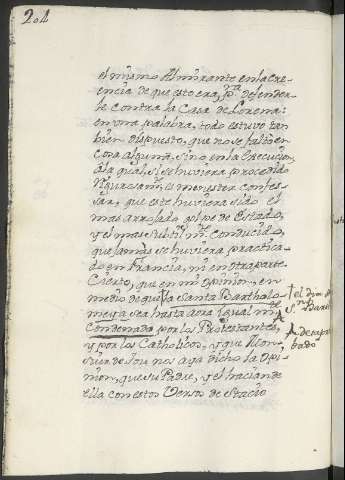 204
el mismo Almirante en la cre-
encia de que esto era, pª defender-
le contra la Casa de Lorena:
en una palabra, todo estuvo tan
bien dispuesto, que no se faltó en
cosa alguna, sino en la execucion,
â la qual, si se huviera procedido
es menester confes-
sar, que este huviera sido el
mas arrojado golpe de Estado,
y el mas subtilmte. conducido,
que jamàs se huviera practica-
do en Francia, ni en otra parte
Cierto, que en mi Opinion, en
medio de que † la Santa Bartholo-
mea ya sea hasta aora igualmte.
Condenada por los Protestantes,
y por los Catholicos, y que Mon-
siur de Tou nos aya dicho la Opi-
nion, que su Padre, y el hacian de
ella con estos Versos de Stacio
† el dia de
Sn. Bart
desapro
bado